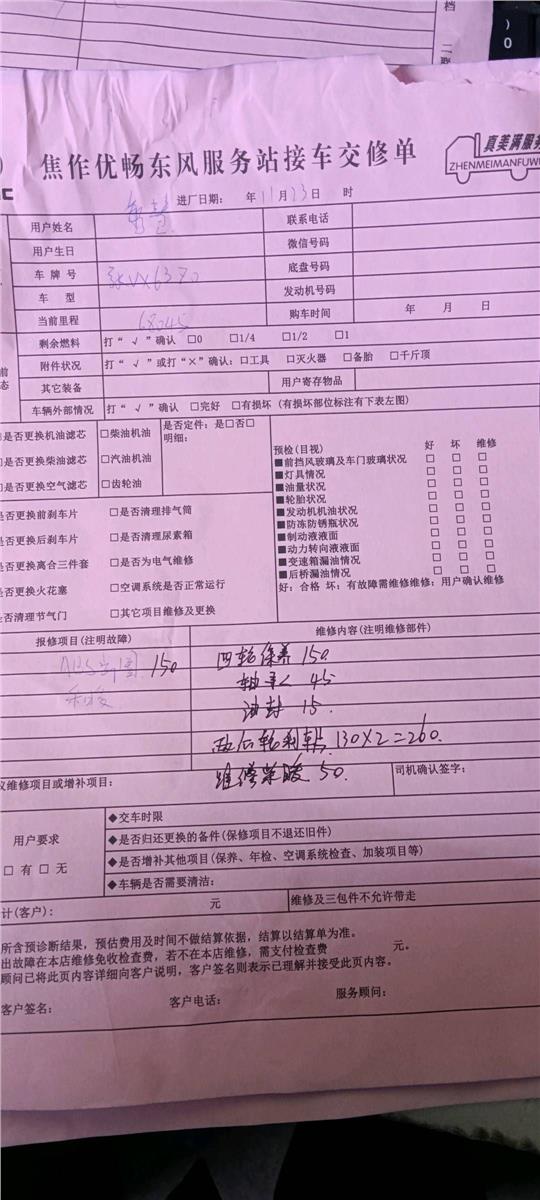 档
二联
0
焦作优畅东风服务站接车交修单
真美满服务
ZHENMEIMANFUWU
进厂日期： 年 11 月 23 日 时
用户姓名 联系电话
用户生日 微信号码
车 牌 号 底盘号码
车 型 发动机号码
当前里程 68045 购车时间 年 月 日
剩余燃料 打“ √ ”确认 □0 □1/4 □1/2 □1
附件状况 打“ √ ”或打“×”确认：□工具 □灭火器 □备胎 □千斤顶
其它装备 用户寄存物品
车辆外部情况 打“ √ ”确认 □完好 □有损坏 (有损坏部位标注有下表左图)
是否更换机油滤芯 □柴油机油 是否定件：是□否□
明细：
是否更换柴油滤芯 □汽油机油
是否更换空气滤芯 □齿轮油
预检(目视) 好 坏 维修
■前挡风玻璃及车门玻璃状况 □ □ □
■灯具情况 □ □ □
■油量状况 □ □ □
■轮胎状况 □ □ □
■发动机机油状况 □ □ □
■防冻防锈瓶状况 □ □ □
■制动液液面 □ □ □
■动力转向液液面 □ □ □
■变速箱漏油情况 □ □ □
■后桥漏油情况 □ □ □
好：合格 坏：有故障需维修维修：用户确认维修
是否更换前刹车片 □是否清理排气筒
是否更换后刹车片 □是否清理尿素箱
是否更换离合三件套 □是否为电气维修
是否更换火花塞 □空调系统是否正常运行
是否清理节气门 □其它项目维修及更换
报修项目(注明故障) 维修内容(注明维修部件)
150 四轮保养 150
轴承 45
油封 15.
260.
130×2=
维修 暖 50.
议维修项目或增补项目： 司机确认签字：
用户要求
□ 有 □ 无
◆交车时限
◆是否归还更换的备件(保修项目不退还旧件)
◆是否增补其他项目(保养、年检、空调系统检查、加装项目等)
◆车辆是否需要清洁：
计(客户)： 元 维修及三包件不允许带走
所含预诊断结果，预估费用及时间不做结算依据，结算以结算单为准。
出故障在本店维修免收检查费，若不在本店维修，需支付检查费 元。
顾问已将此页内容详细向客户说明，客户签名则表示已理解并接受此页内容。
客户签名： 客户电话： 服务顾问：